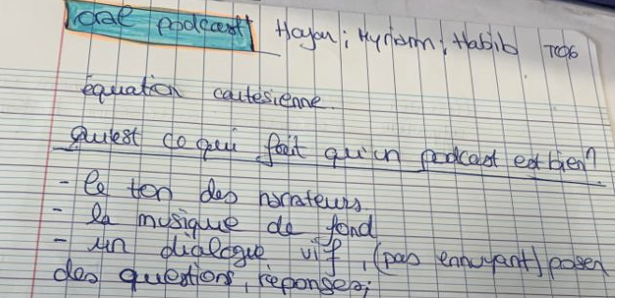 oral podcast Hajar ; Myriam ; Habib TG06
équation cartésienne
qu'est ce qui fait qu'un podcast est bien?
- le ton des narrateurs.
- la musique de fond
- un dialogue vif, (pas ennuyant) poser
des questions, réponses;